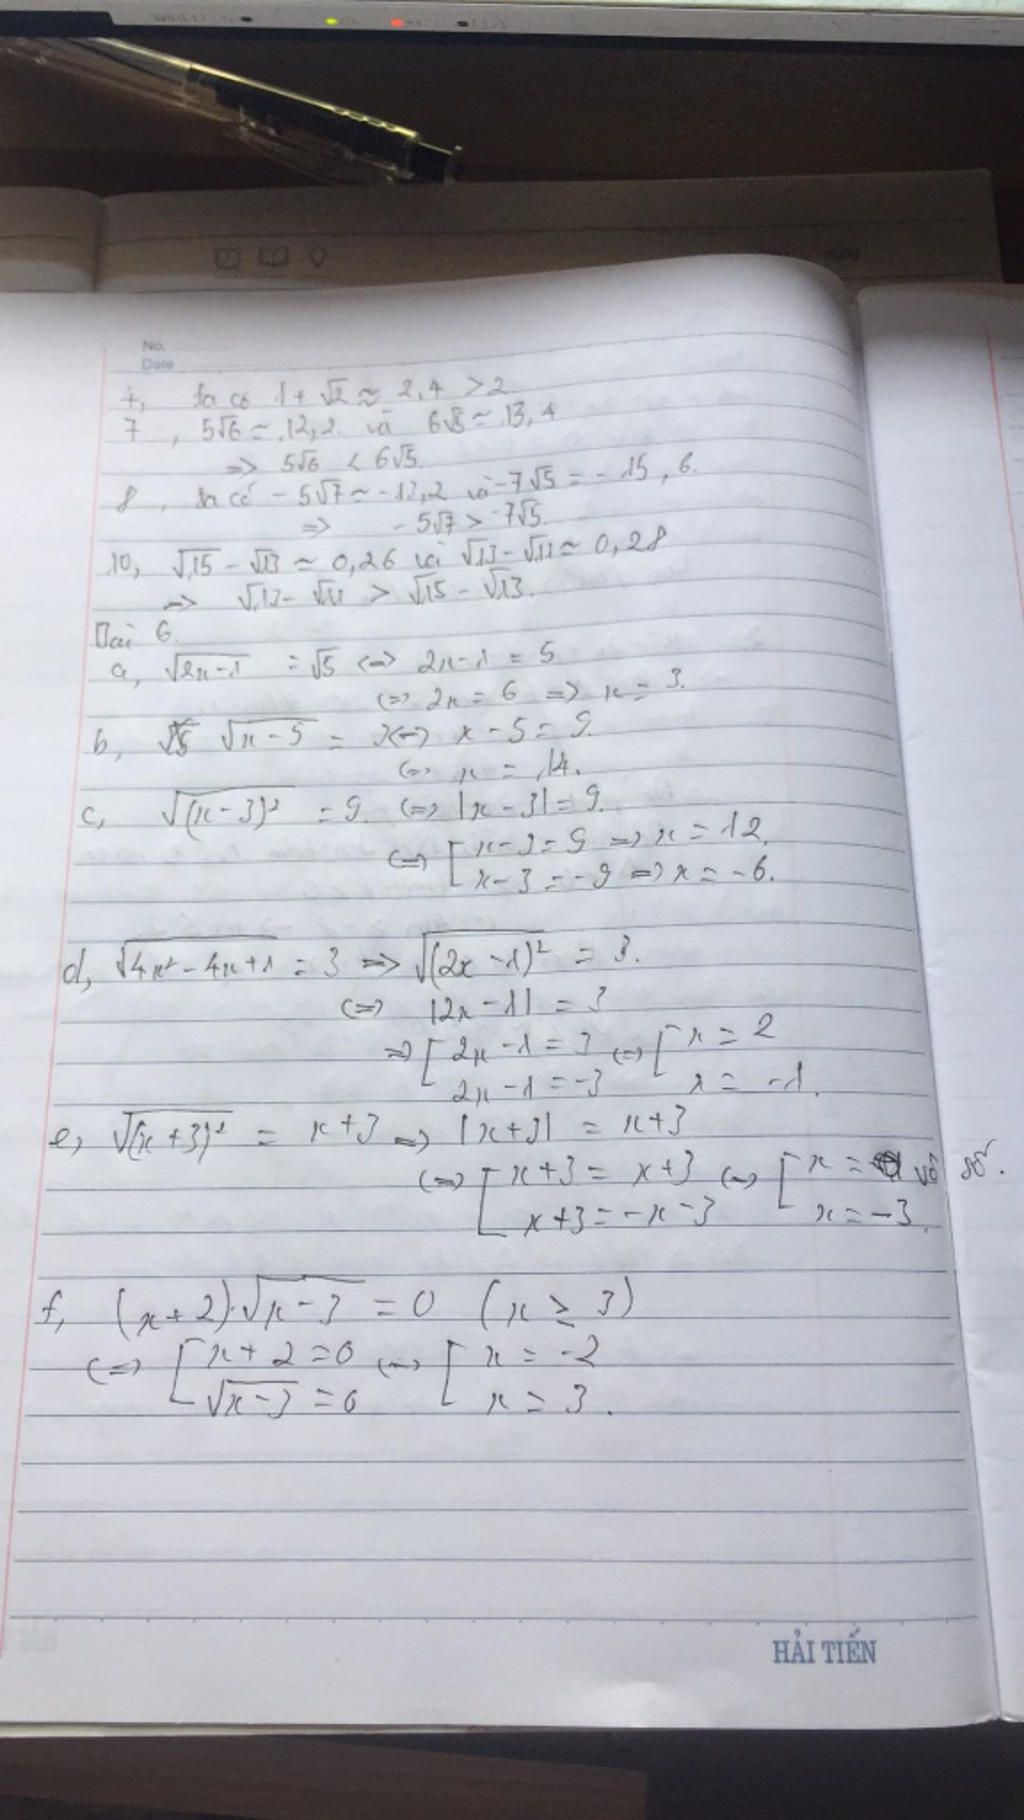 No.
Date
4, ta có 1 + √2 ≈ 2,4 > 2.
7, 5√6 ≈ 12,2 và 6√5 ≈ 13,4
=> 5√6 < 6√5.
8, ta có -5√7 ≈ -13,2 và -7√5 = -15,6.
=> -5√7 > -7√5.
10, √15 - √13 ≈ 0,26 và √13 - √11 ≈ 0,28
=> √13 - √11 > √15 - √13.
Bài 6.
a, √(2x-1) = √5 <=> 2x-1 = 5
<=> 2x = 6 => x = 3.
b, √(x-5) = 3 <=> x - 5 = 9.
<=> x = 14.
c, √((x-3)²) = 9. <=> |x-3| = 9.
<=> [ x-3 = 9 => x = 12.
x-3 = -9 => x = -6.
d, √(4x²-4x+1) = 3 => √((2x-1)²) = 3.
<=> |2x-1| = 3
=> [ 2x-1 = 3 <=> [ x = 2
2x-1 = -3 x = -1.
e, √((x+3)²) = x+3 => |x+3| = x+3
<=> [ x+3 = x+3 <=> [ x = vô số.
x+3 = -x-3 x = -3.
f, (x+2).√(x-3) = 0 (x ≥ 3)
<=> [ x+2 = 0 <=> [ x = -2
√(x-3) = 0 x = 3.
HẢI TIẾN